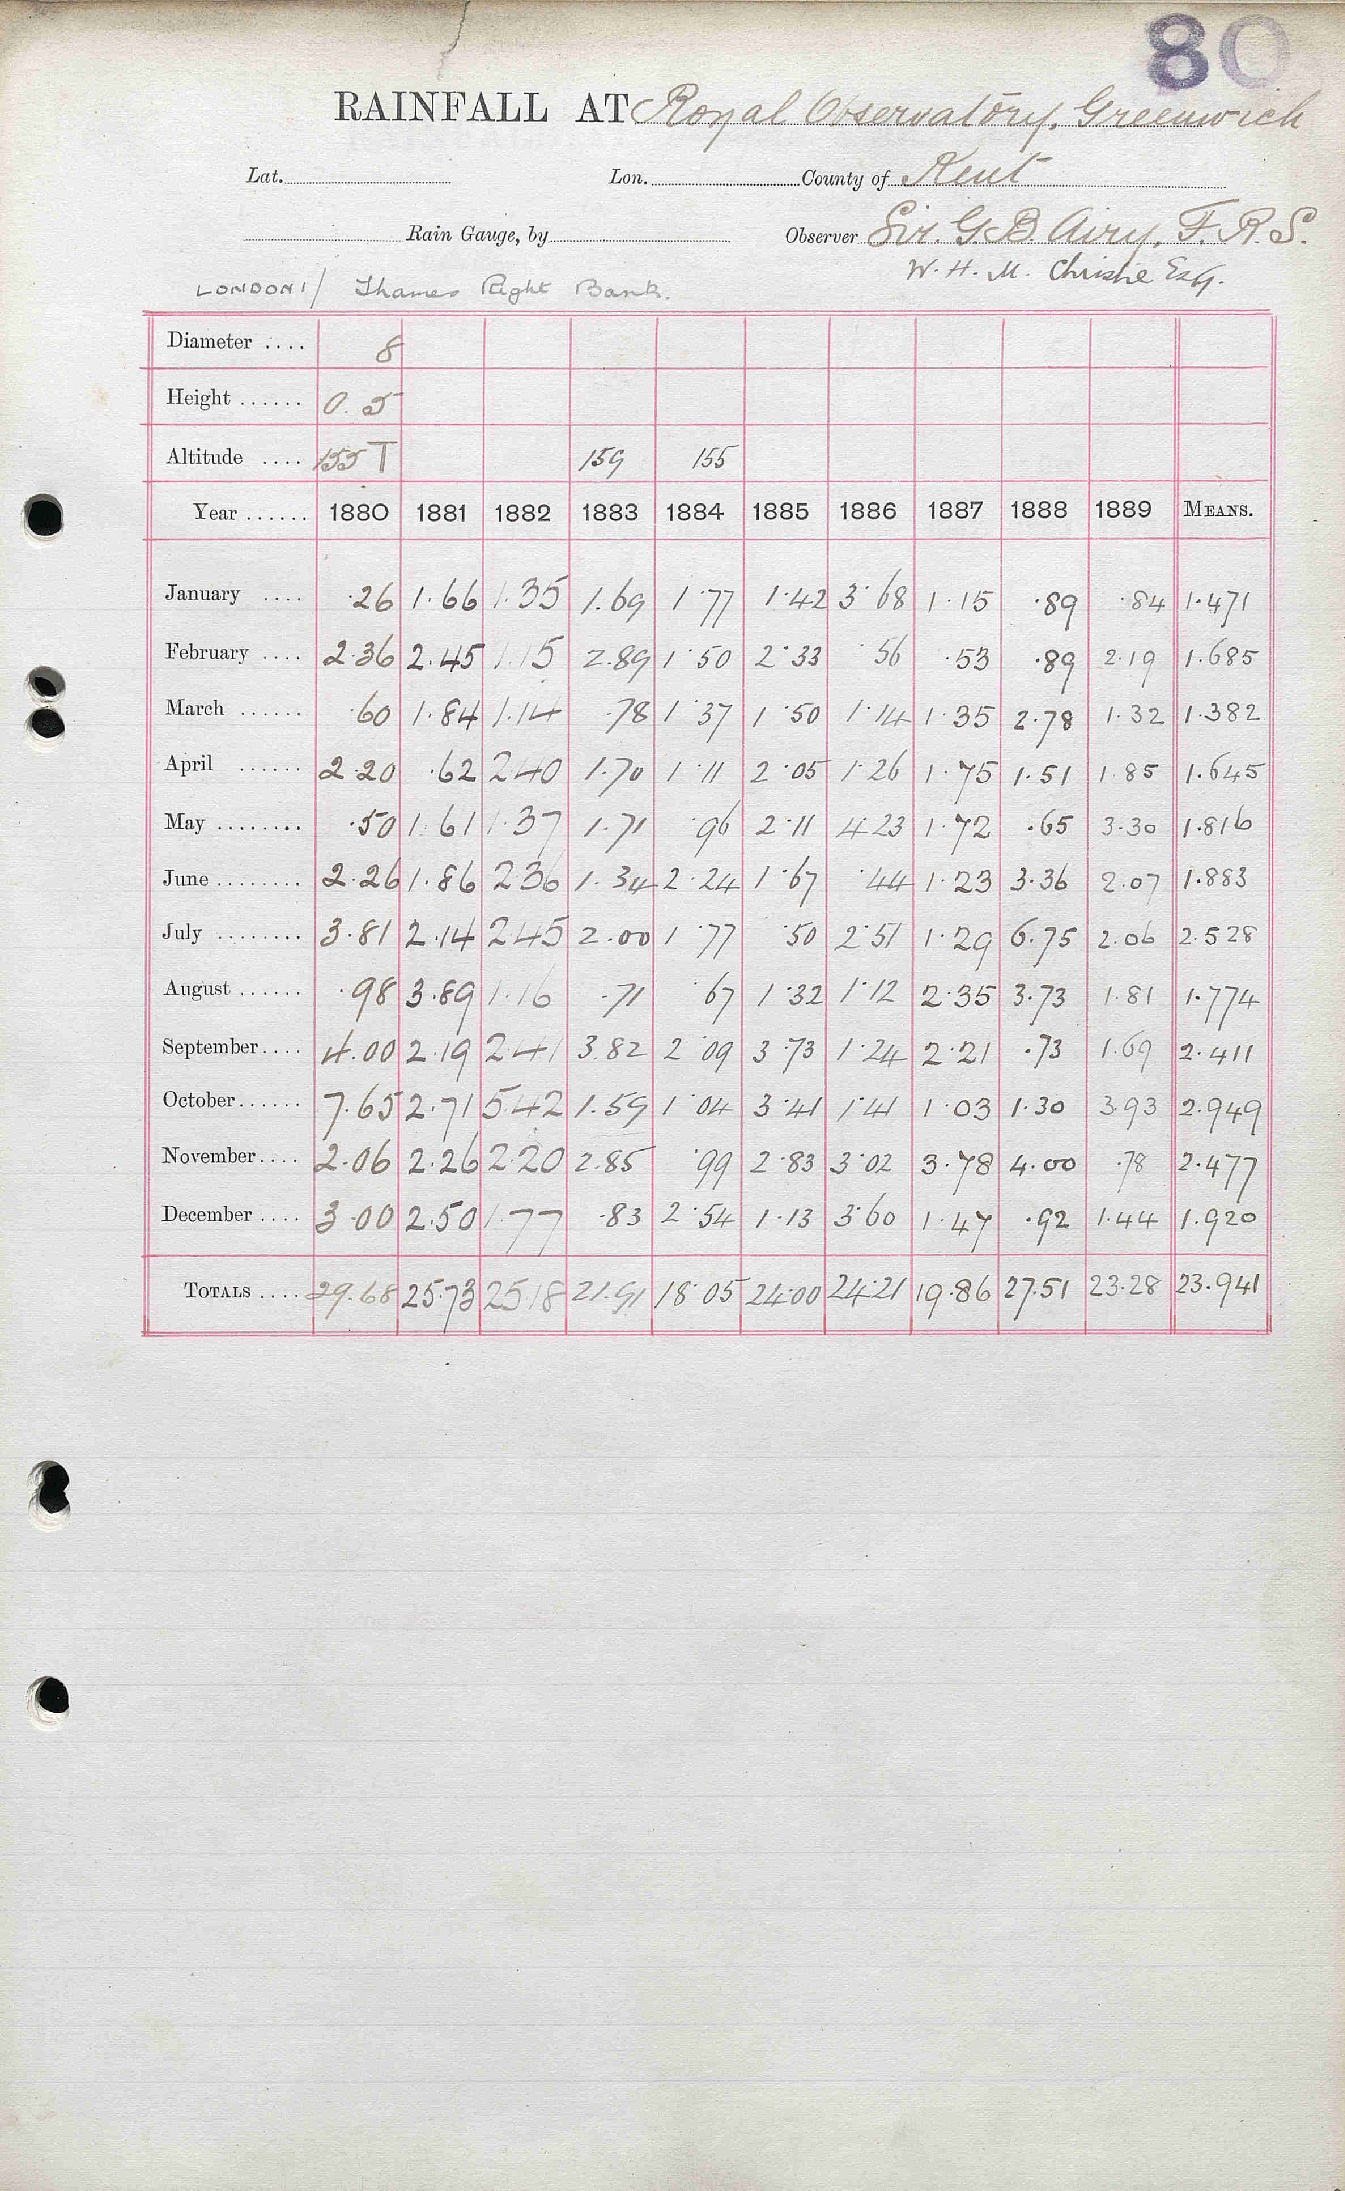 80
RAINFALL AT Royal Observatory, Greenwich
Lat. Lon. County of Kent
Rain Gauge, by Observer Sir. G. B. Airy, F. R. S.
W. H. M. Christie Esq.
LONDON / Thames Right Bank.
Diameter .... 8
Height ...... 0.5
Altitude .... 155 T 159 155
Year ...... 1880 1881 1882 1883 1884 1885 1886 1887 1888 1889 MEANS.
January .... .26 1.66 1.35 1.69 1.77 1.42 3.68 1.15 .89 .84 1.471
February .... 2.36 2.45 1.15 2.89 1.50 2.33 .56 .53 .89 2.19 1.685
March ...... .60 1.84 1.14 .78 1.37 1.50 1.14 1.35 2.78 1.32 1.382
April ...... 2.20 .62 2.40 1.70 1.11 2.05 1.26 1.75 1.51 1.85 1.645
May ........ .50 1.61 1.37 1.71 .96 2.11 4.23 1.72 .65 3.30 1.816
June ........ 2.26 1.86 2.36 1.34 2.24 1.67 .44 1.23 3.36 2.07 1.883
July ........ 3.81 2.14 2.45 2.00 1.77 .50 2.51 1.29 6.75 2.06 2.528
August ...... .98 3.89 1.16 .71 .67 1.32 1.12 2.35 3.73 1.81 1.774
September .... 4.00 2.19 2.41 3.82 2.09 3.73 1.24 2.21 .73 1.69 2.411
October ...... 7.65 2.71 5.42 1.59 1.04 3.41 1.41 1.03 1.30 3.93 2.949
November .... 2.06 2.26 2.20 2.85 .99 2.83 3.02 3.78 4.00 .78 2.477
December .... 3.00 2.50 1.77 .83 2.54 1.13 3.60 1.47 .92 1.44 1.920
TOTALS .... 29.68 25.73 25.18 21.91 18.05 24.00 24.21 19.86 27.51 23.28 23.941